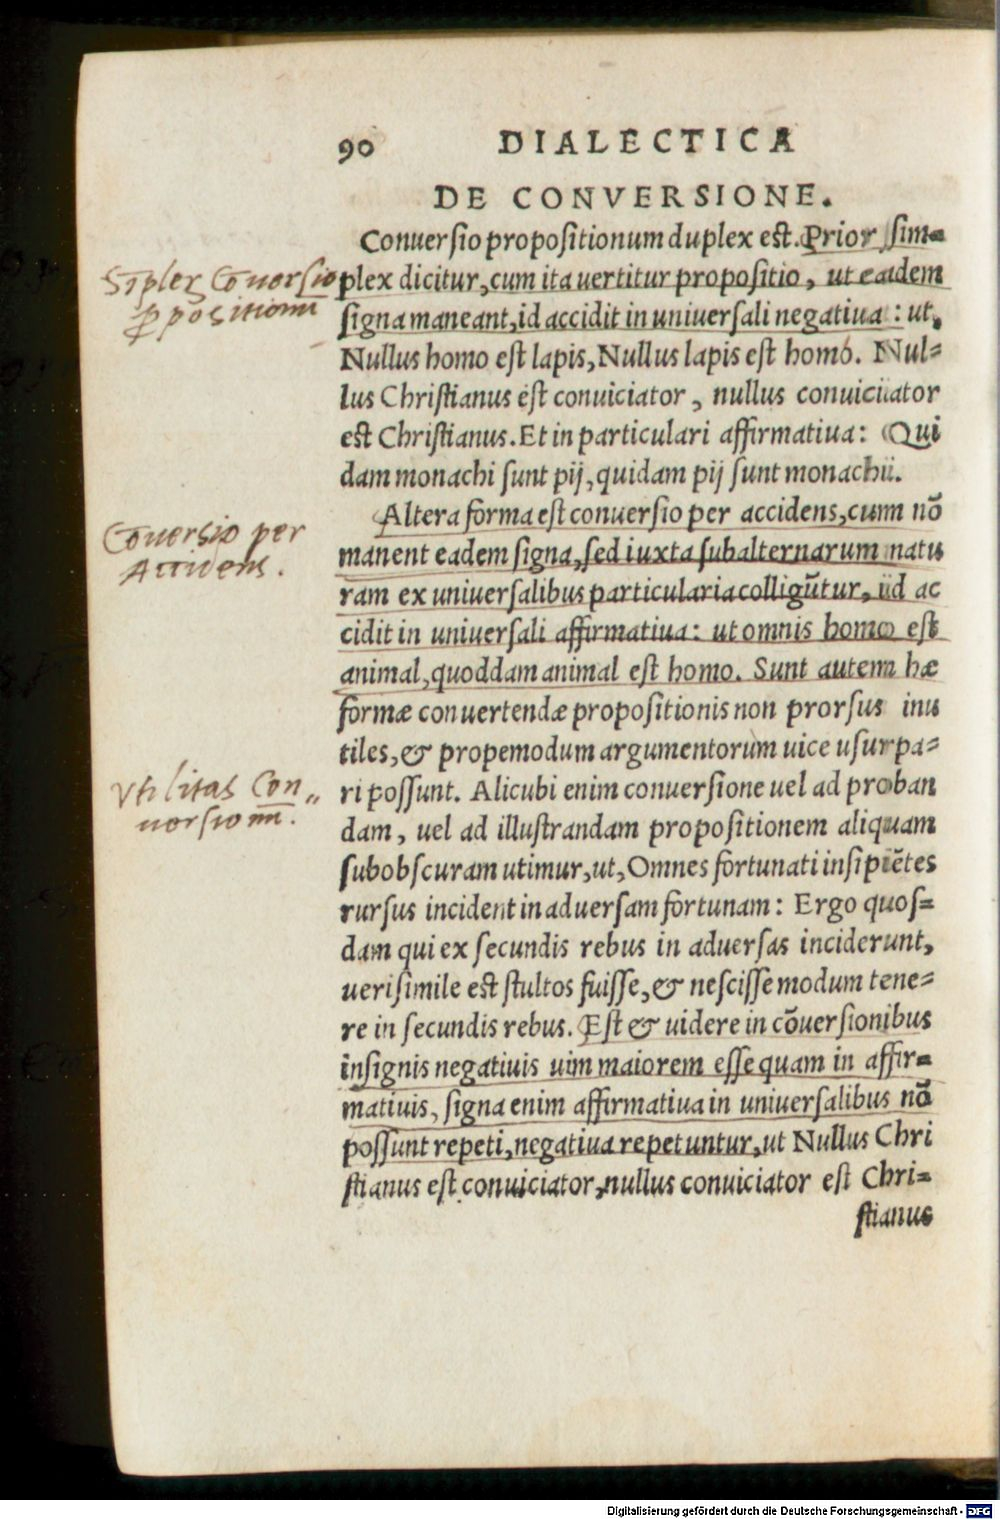 90 DIALECTICA
DE CONVERSIONE.
Conuersio propositionum duplex est. Prior sim=
plex dicitur, cum ita uertitur propositio, ut eadem
signa maneant, id accidit in uniuersali negatiua : ut,
Nullus homo est lapis, Nullus lapis est homo. Nul=
lus Christianus est conuiciator, nullus conuiciator
est Christianus. Et in particulari affirmatiua: Qui
dam monachi sunt pij, quidam pij sunt monachi.
Altera forma est conuersio per accidens, cum nō
manent eadem signa, sed iuxta subalternarum natu
ram ex uniuersalibus particularia colligūtur, id ac
cidit in uniuersali affirmatiua: ut omnis homo est
animal, quoddam animal est homo. Sunt autem hæ
formæ conuertendæ propositionis non prorsus inu
tiles, & propemodum argumentorum uice usurpa=
ri possunt. Alicubi enim conuersione uel ad proban
dam, uel ad illustrandam propositionem aliquam
subobscuram utimur, ut, Omnes fortunati insipiētes
rursus incident in aduersam fortunam: Ergo quos=
dam qui ex secundis rebus in aduersas inciderunt,
uerisimile est stultos fuisse, & nescisse modum tene=
re in secundis rebus. Est & uidere in cōuersionibus
insignis negatiuis uim maiorem esse quam in affir=
matiuis, signa enim affirmatiua in uniuersalibus nō
possunt repeti, negatiua repetuntur, ut Nullus Chri
stianus est conuiciator, nullus conuiciator est Chri=
stianus
Sīplex Cōuersio
ꝓpositionū
Cōuersio per
Accidens.
Vtilitas Con„
uersionū.
Digitalisierung gefördert durch die Deutsche Forschungsgemeinschaft - DFG